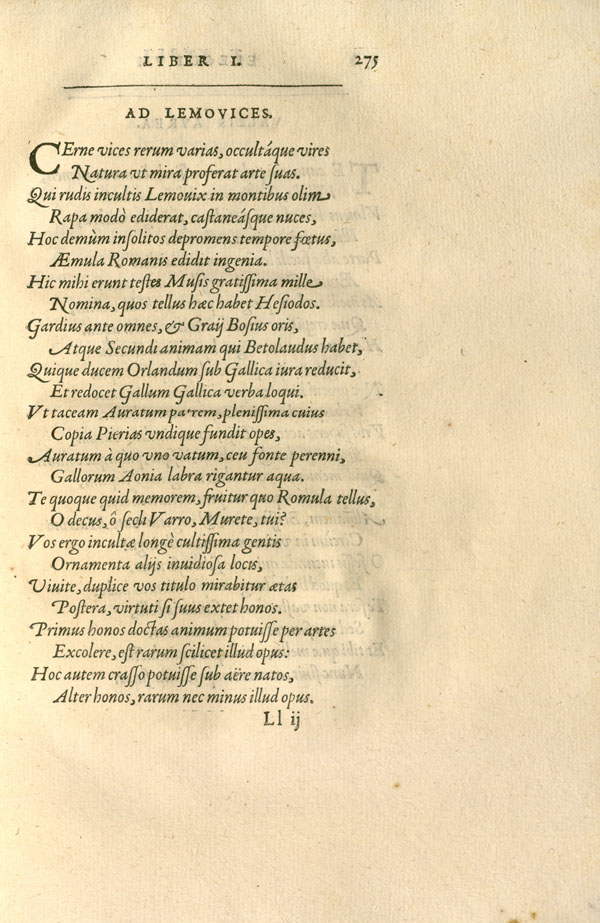 LIBER I. 275
AD LEMOVICES.
CErne vices rerum varias, occultáque vires
Natura vt mira proferat arte suas.
Qui rudis incultis Lemouix in montibus olim
Rapa modò ediderat, castaneásque nuces,
Hoc demùm insolitos depromens tempore fœtus,
Æmula Romanis edidit ingenia.
Hic mihi erunt testes Musis gratissima mille
Nomina, quos tellus hæc habet Hesiodos.
Gardius ante omnes, & Graij Bosius oris,
Atque Secundi animam qui Betolaudus habet,
Quique ducem Orlandum sub Gallica iura reducit,
Et redocet Gallum Gallica verba loqui.
Vt taceam Auratum patrem, plenissima cuius
Copia Pierias vndique fundit opes,
Auratum à quo vno vatum, ceu fonte perenni,
Gallorum Aonia labra rigantur aqua.
Te quoque quid memorem, fruitur quo Romula tellus,
O decus, ô secli Varro, Murete, tui?
Vos ergo incultæ longè cultissima gentis
Ornamenta alijs inuidiosa locis,
Viuite, duplice vos titulo mirabitur ætas
Postera, virtuti si suus extet honos.
Primus honos doctas animum potuisse per artes
Excolere, est rarum scilicet illud opus:
Hoc autem crasso potuisse sub aëre natos,
Alter honos, rarum nec minus illud opus.
Ll ij